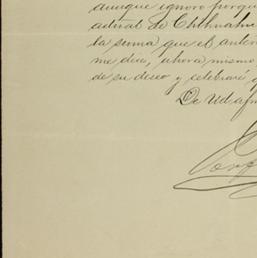 aunque ignoro porqu
actual de Chihuahu
la suma que el anter
me dice, ahora mismo
de su deseo y celebraré q
De Ud. afm
Porf